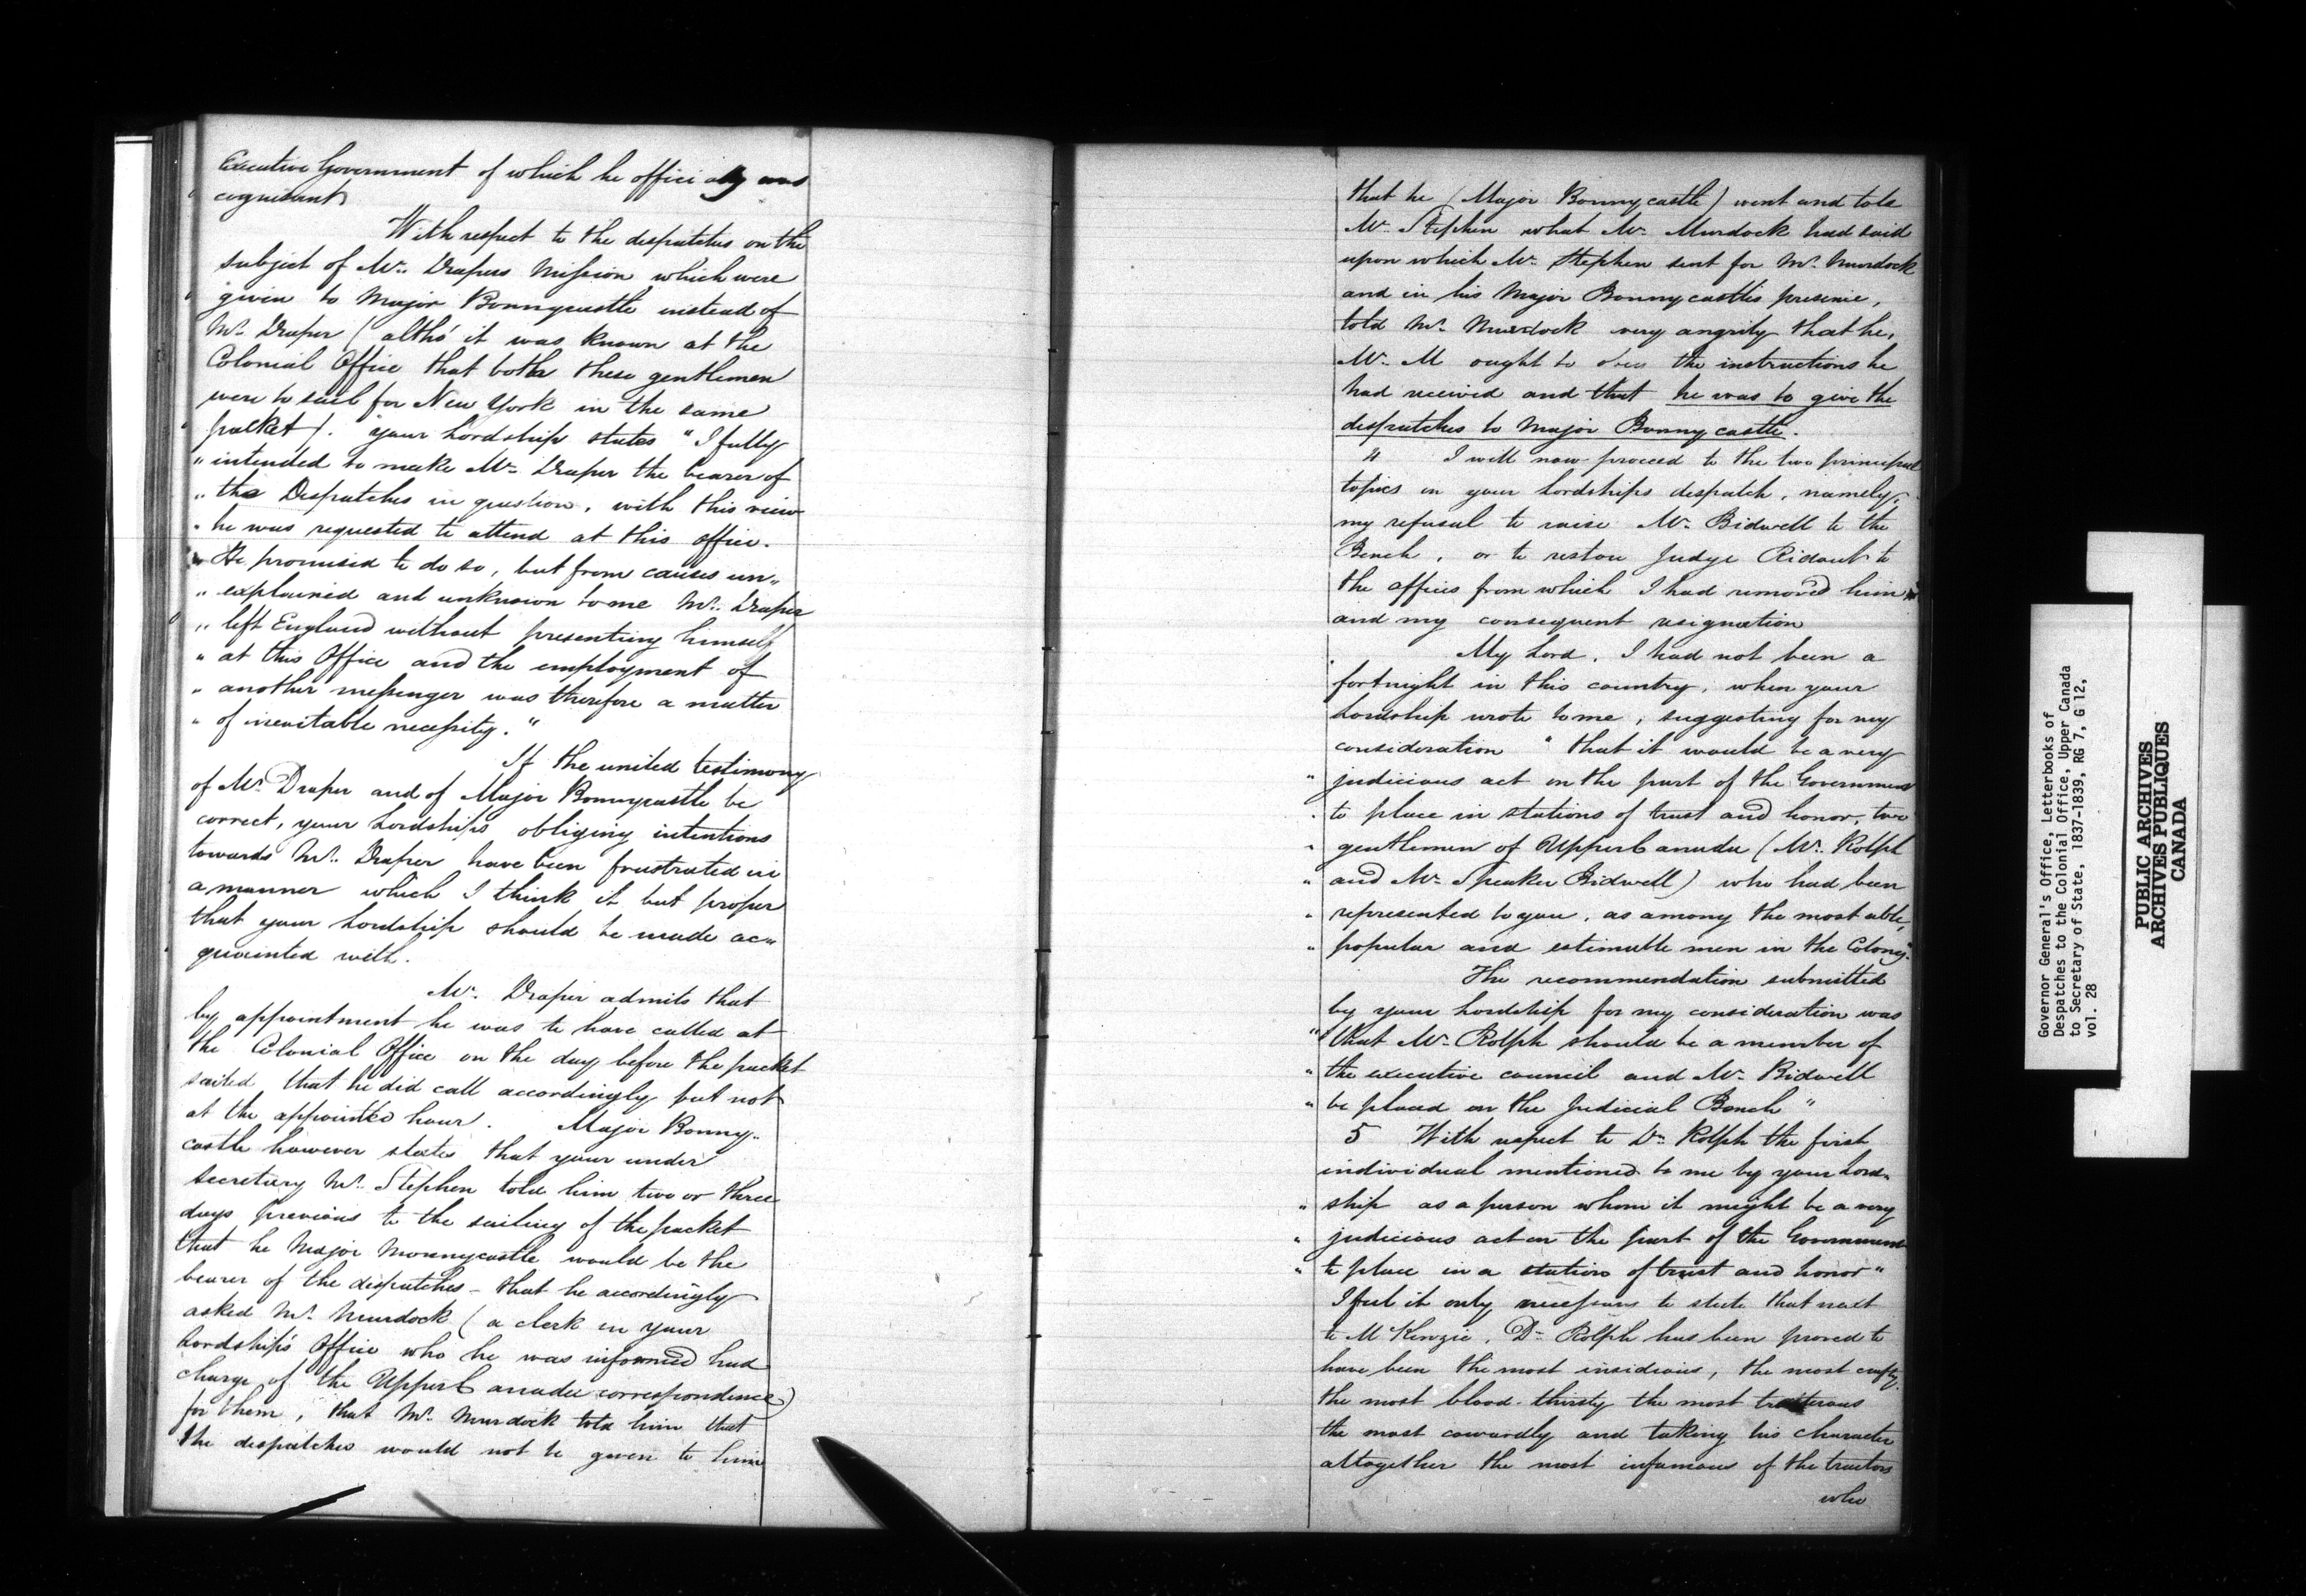 Executive Government of which he officially was
cognisant
With respect to the despatches on the
subject of Mr. Drapers Mission which were
given to Major Bonnycastle instead of
Mr. Draper (altho' it was known at the
Colonial Office that both these gentlemen
were to sail for New York in the same
packet). your Lordship states "I fully
" intended to make Mr. Draper the bearer of
" the Despatches in question, with this view
" he was requested to attend at this office.
" He promised to do so, but from causes un"
" explained and unknown to me Mr. Draper
" left England without presenting himself
" at this Office and the employment of
" another messenger was therefore a matter
" of inevitable necessity."
If the united testimony
of Mr. Draper and of Major Bonnycastle be
correct, your Lordships obliging intentions
towards Mr. Draper have been frustrated in
a manner which I think it but proper
that your Lordship should be made ac"
quainted with.
Mr. Draper admits that
by appointment he was to have called at
the Colonial Office on the day before the packet
sailed that he did call accordingly but not
at the appointed hour. Major Bonny"
castle however states that your under
secretary Mr. Stephen told him two or three
days previous to the sailing of the packet
that he Major Monnycastle would be the
bearer of the dispatches - that he accordingly
asked Mr. Murdock (a clerk in your
Lordship's Office who he was informed had
charge of the Upper Canada correspondence)
for them, that Mr. Murdock told him that
the despatches would not be given to him
that he (Major Bonnycastle) went and told
Mr. Stephen what Mr. Murdock had said
upon which Mr. Stephen sent for Mr. Murdock
and in his Major Bonnycastles presence,
told Mr. Murdock very angrily that he,
Mr. M ought to obey the instructions he
had received and that he was to give the
despatches to Major Bonnycastle.
4 I will now proceed to the two principal
topics in your Lordships despatch, namely,
my refusal to raise Mr. Bidwell to the
Bench, or to restore Judge Ridout to
the offices from which I had removed him
and my consequent resignation
My Lord, I had not been a
fortnight in this country, when your
Lordship wrote to me, suggesting for my
consideration "that it would be a very
" judicious act on the part of the Government
" to place in stations of trust and honor, two
" gentlemen of Upper Canada (Mr. Rolph
" and Mr. Speaker Bidwell) who had been
" represented to you, as among the most able,
" popular and estimable men in the Colony."
The recommendation submitted
by your Lordship for my consideration was
" that Mr. Rolph should be a member of
" the executive council and Mr. Bidwell
" be placed on the Judicial Bench"
5 With respect to Dr. Rolph the first
individual mentioned to me by your Lord"
" ship as a person whom it might be a very
" judicious act on the part of the Government
" to place in a station of trust and honor"
I feel it only necessary to state that next
to McKenzie, Dr. Rolph has been proved to
have been the most insidious, the most crafty,
the most blood-thirsty the most traitorous
the most cowardly and taking his character
altogether the most infamous of the traitors
who
Governor General's Office, Letterbooks of
Despatches to the Colonial Office, Upper Canada
to Secretary of State, 1837-1839, RG 7, G 12,
vol. 28
PUBLIC ARCHIVES
ARCHIVES PUBLIQUES
CANADA